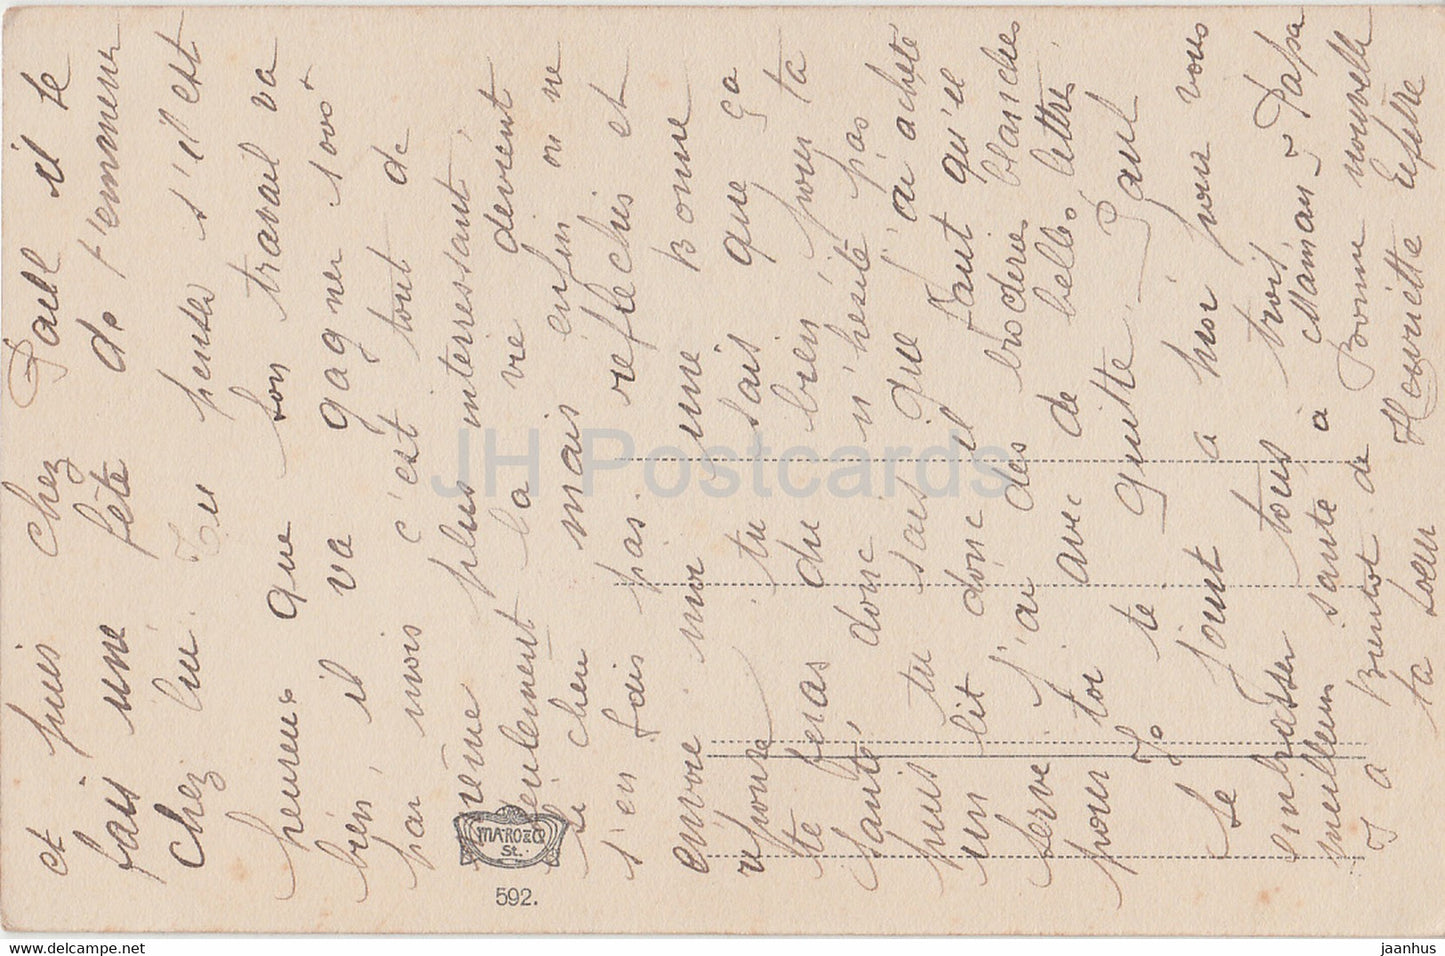 et puis chez Paul il se
fais une fête de t'emmener
chez lui. Tu penses s'il est
heureux que son travail va
bien, il va gagner 500f
par mois c'est tout de
même plus interressant,
seulement la vie devient
si cher mais enfin on ne
s'en fais pas reflechis et
envoie moi une bonne
reponse tu sais que ça
te feras du bien pour ta
santé, donc n'hesite pas
puis tu sais que j'ai acheté
un lit donc il faut qu'il
serve j'ai des broderies blanches
pour toi avec de belles lettres
Je te quitte. Paul
se joint a moi pour vous
embrasser tous trois
meilleur santé a Maman, Papa
J a Bientot de Bonne nouvelle
ta soeur Henriette Lefebre
MARO & Co
St.
592.
JH Postcards
www.delcampe.net
jaanhus